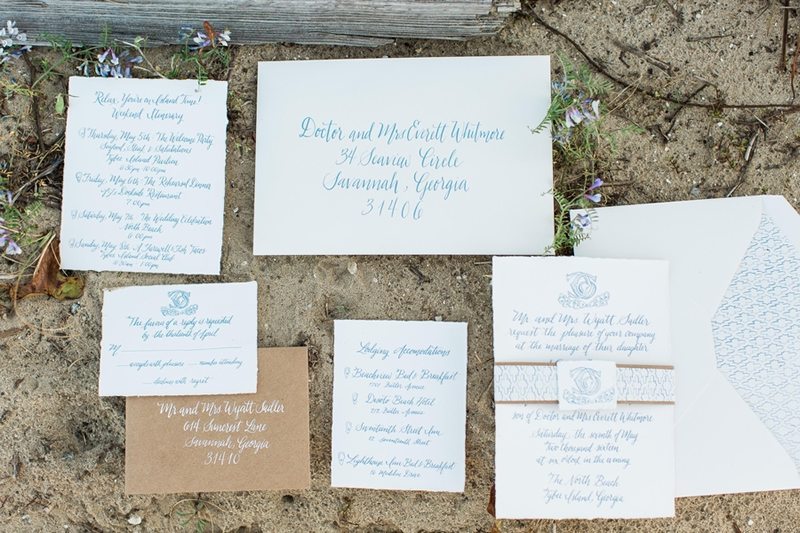 Relax, You're on Island Time!
Weekend Itinerary
Thursday, May 5th The Welcome Party
Seafood, Steal & Salutations
Tybee Island Pavilion
Friday, May 6th The Rehearsal Dinner
Restaurant
7:00pm
Saturday, May 7th The Wedding Celebration
North Beach
6:00pm
Sunday, May 8th A Farewell & Fish Tacos
Tybee Island Social Club
Doctor and Mrs Everitt Whitmore
34 Seaview Circle
Savannah, Georgia
31406
The favour of a reply is requested
by the thirteenth of April
M
accepts with pleasure number attending
declines with regret
Mr and Mrs Wyatt Sadler
614 Suncrest Lane
Savannah, Georgia
31410
Lodging Accomodations
Beachview Bed & Breakfast
1701 Butler Avenue
DeSoto Beach Hotel
212 Butler Avenue
Seventeenth Street Inn
12 Seventeenth Street
Lighthouse Inn Bed & Breakfast
16 Meddin Drive
Mr and Mrs Wyatt Sadler
request the pleasure of your company
at the marriage of their daughter
son of Doctor and Mrs Everitt Whitmore
Saturday, the seventh of May
Two thousand sixteen
at six o'clock in the evening
The North Beach
Tybee Island, Georgia